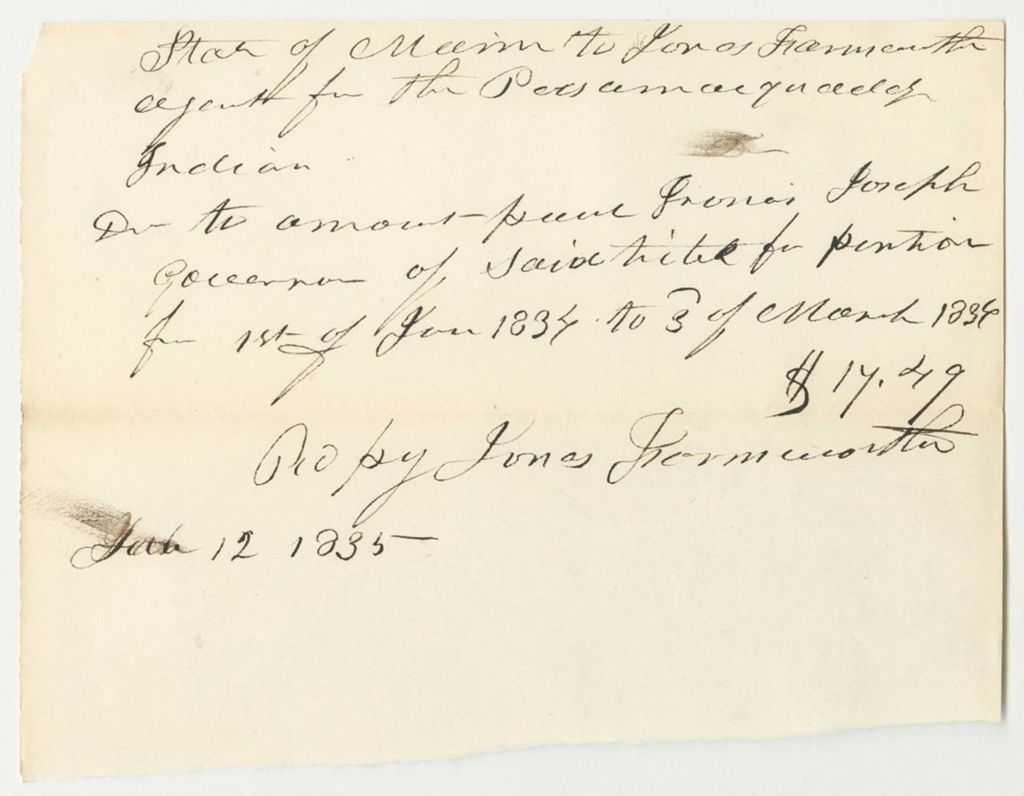 State of Maine to Jonas Farnsworth
agent for the Passamaquaddy
Indian
Dr to amount paid Francis Joseph
Governor of said tribe for pention
for 1st of Jan 1834 to 3 of March 1834
$ 17.49
Rd pay Jonas Farnsworth
12 1835